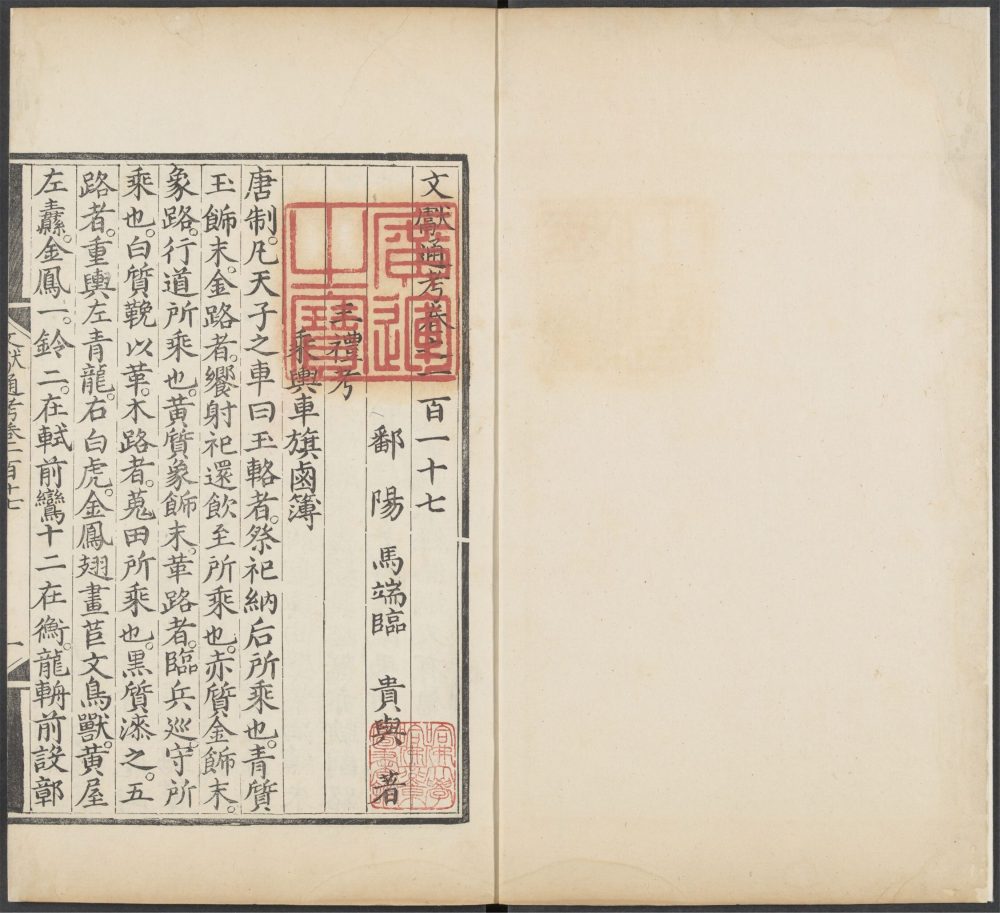 文獻通考卷之一百一十七
鄱陽馬端臨貴與著
王禮考
乘輿車旗鹵簿
唐制。凡天子之車曰玉輅者。祭祀納后所乘也。青質
玉飾末。金路者。饗射祀還飲至所乘也。赤質金飾末。
象路。行道所乘也。黃質象飾末。革路者。臨兵巡守所
乘也。白質鞔以革。木路者。蒐田所乘也。黑質漆之。五
路者。重輿左青龍。右白虎。金鳳翅畫苣文鳥獸。黃屋
左纛。金鳳一。鈴二。在軾前鸞十二在衡。龍輈前設鄣
文獻通考卷一百十七
一
廣運
之寶